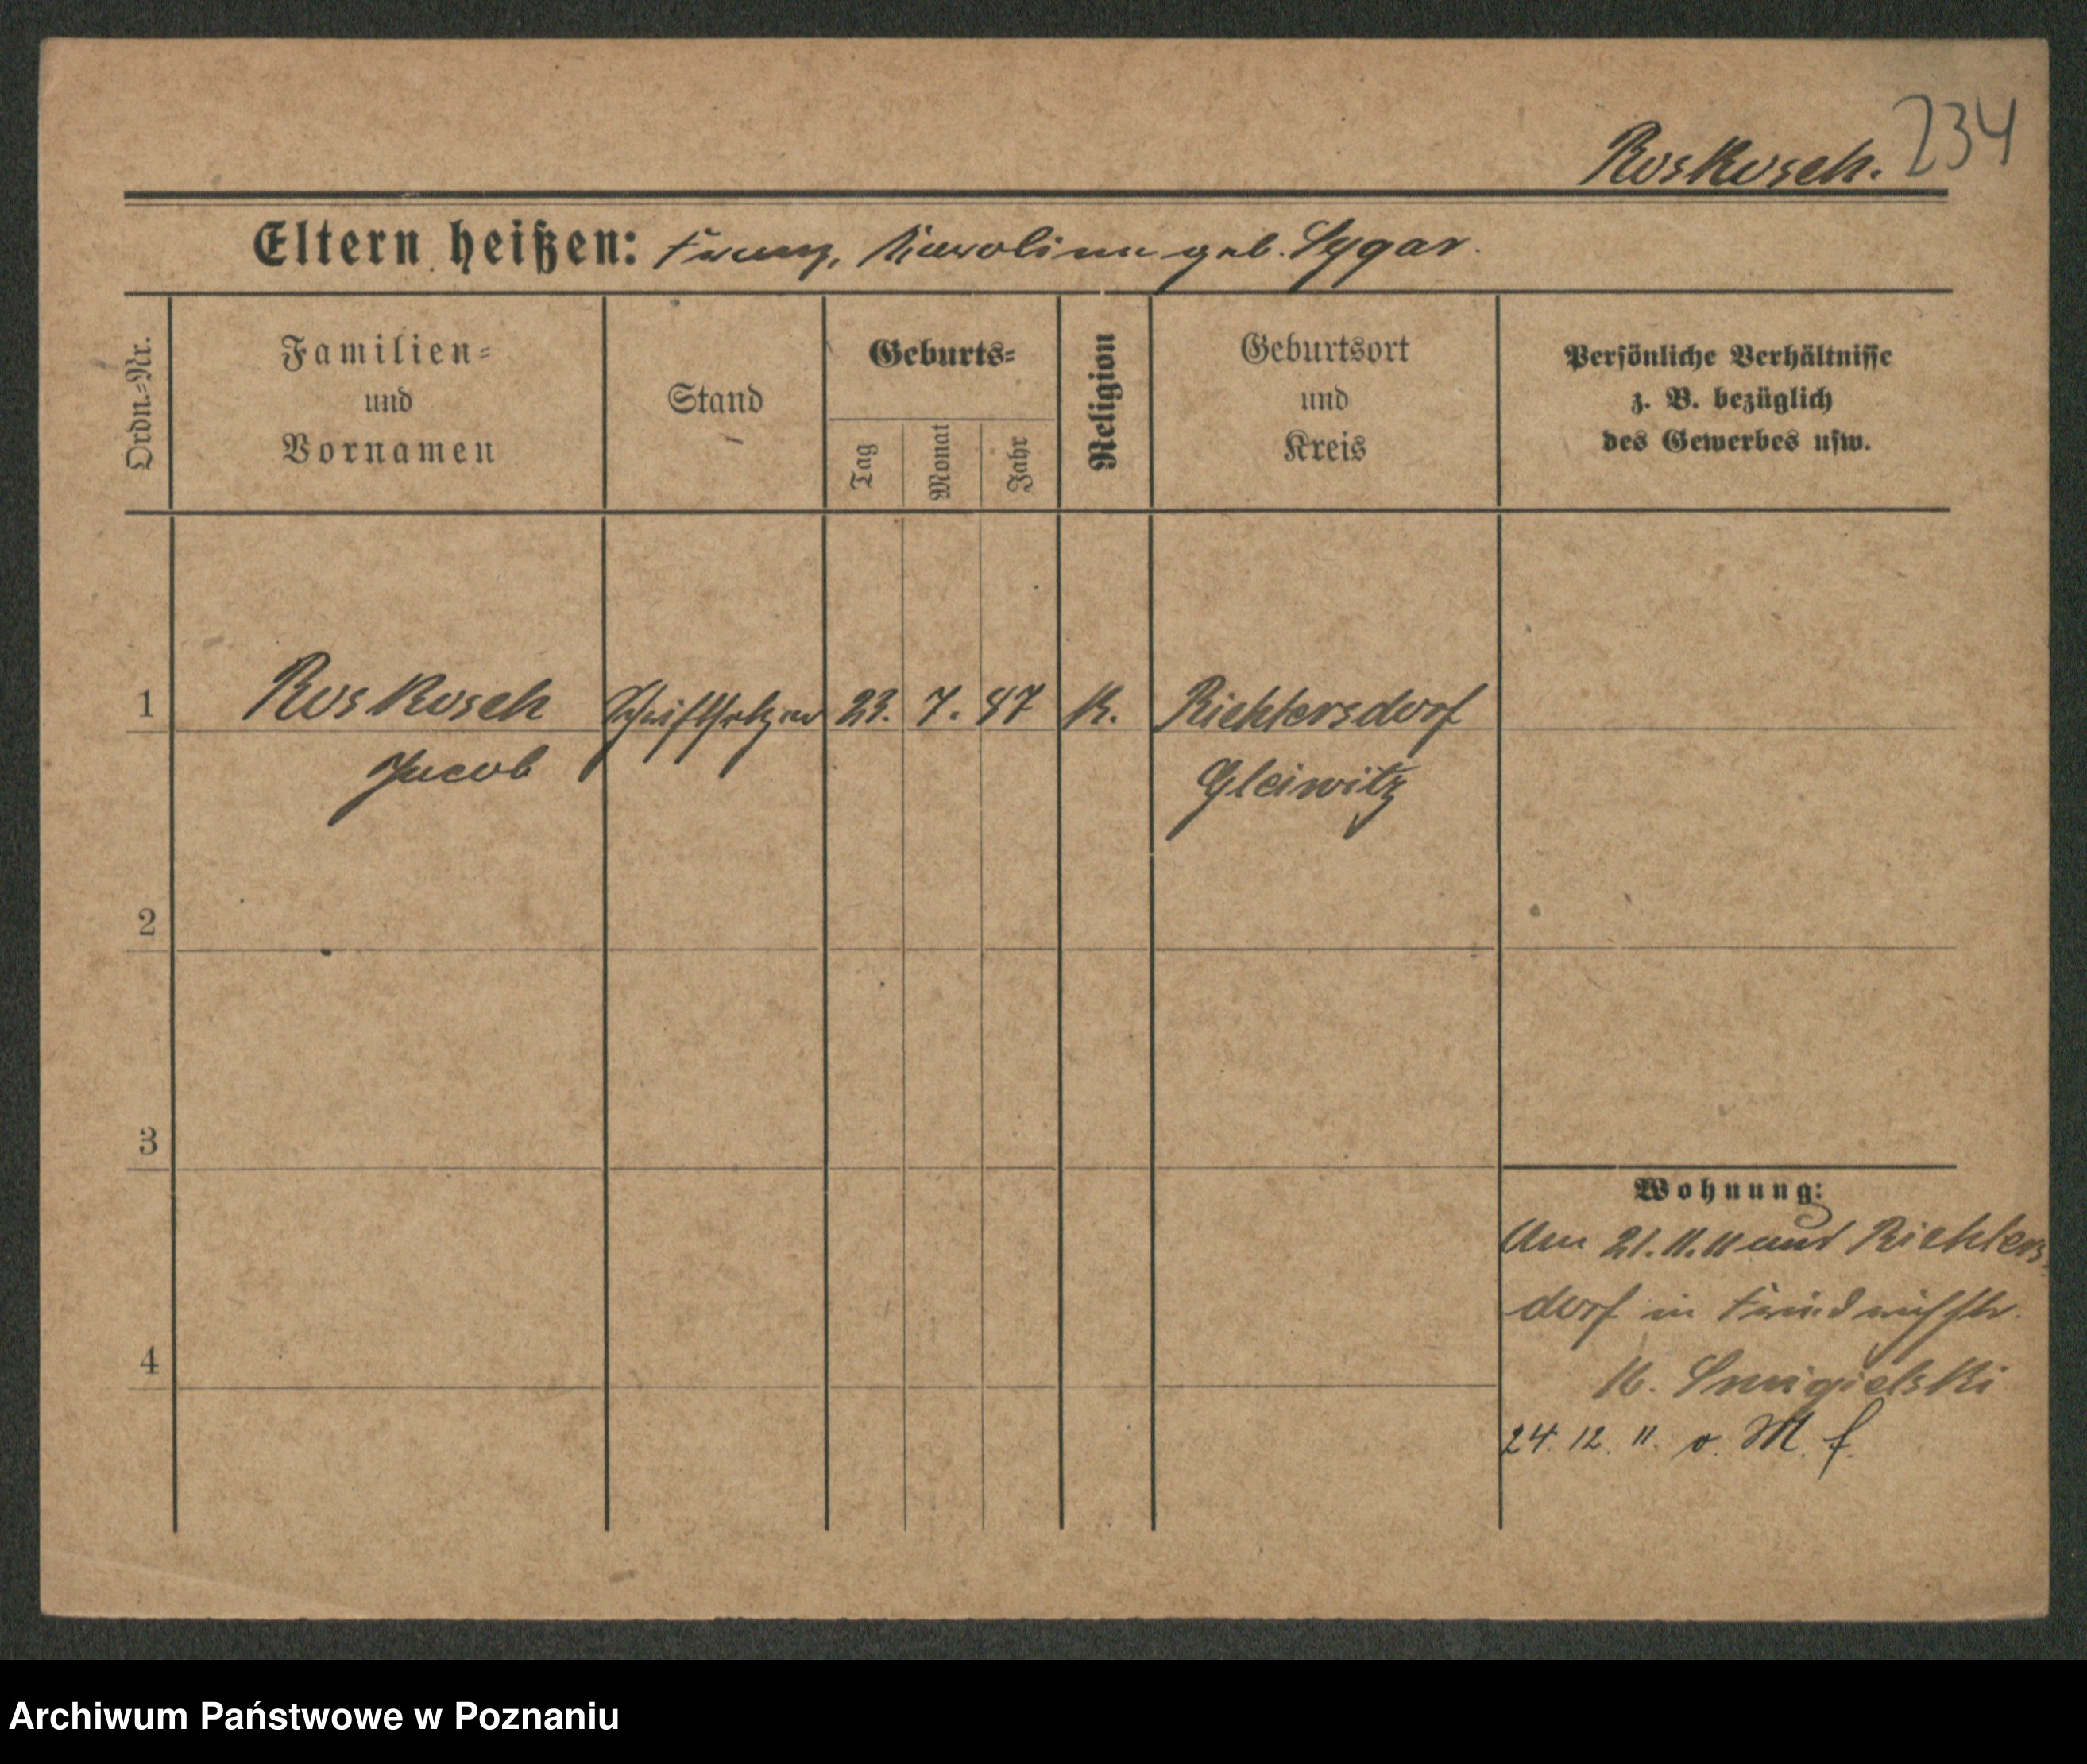 234
Roskosch.
Eltern heißen: Franz, Karolina geb. Sygar.
Ordn.-Nr.
Familien-
und
Vornamen
Stand
Geburts-
Tag
Monat
Jahr
Religion
Geburtsort
und
Kreis
Persönliche Verhältnisse
z. B. bezüglich
des Gewerbes usw.
1
Roskosch Schriftsetzer 23. 7. 87 K. Richtersdorf
Jacob Gleiwitz
2
3
4
Wohnung:
Am 21.11.11 aus Richters-
dorf in Friedrichstr.
b. Smigielski
24. 12. 11. v. M. f.
Archiwum Państwowe w Poznaniu